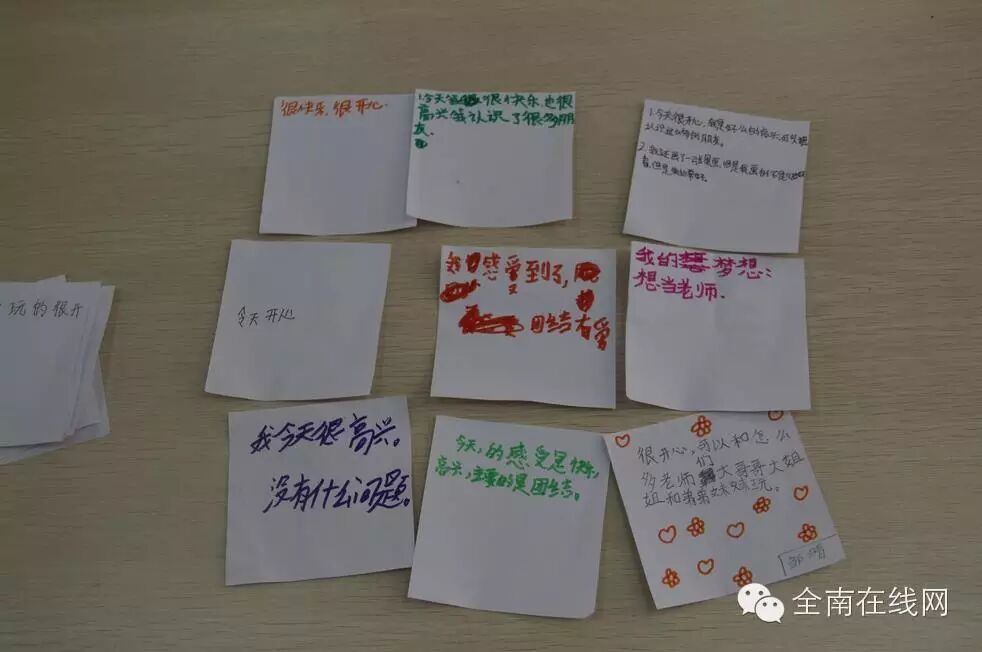 很快乐,很开心.
1.今天 很快乐.也很
高兴我认识了很多朋
友.
1.今天很开心,
认识 的朋友。
2.我还画了一
玩的很开
今天开心
我 感受到了,
团结友爱
我的 梦想:
想当老师.
我今天很高兴。
没有什么问题。
今天,的感受是快乐,
高兴,主要的是团结。
很开心,可以和怎么
多老师们 大哥哥大姐
姐和弟弟妹妹玩。
全南在线网